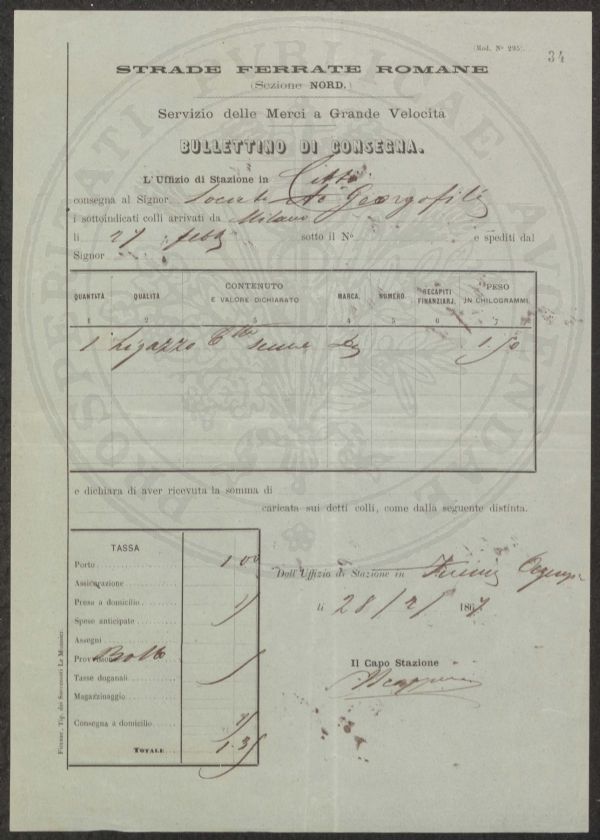 (Mod. N° 295).
34
STRADE FERRATE ROMANE
(Sezione NORD.)
Servizio delle Merci a Grande Velocita
BULLETTINO DI CONSEGNA.
L'Uffizio di Stazione in Città
consegna al Signor Società Georgofili
i sottoindicati colli arrivati da Milano
li 27 febb sotto il N° e spediti dal
Signor
QUANTITÀ QUALITÀ CONTENUTO E VALORE DICHIARATO MARCA. NUMERO. RECAPITI FINANZIARJ. PESO IN CHILOGRAMMI.
1 2 3 4 5 6 7
1 1
e dichiara di aver ricevuta la somma di
caricata sui detti colli, come dalla seguente distinta.
TASSA
Porto 1 00
Assicurazione
Presa a domicilio
Spese anticipate
Assegni
Provvisione Bollo
Tasse doganali
Magazzinaggio
Consegna a domicilio
TOTALE
Dall'Uffizio di Stazione in Firenze
li 28/2/ 1867
Il Capo Stazione
Firenze, Tip. dei Successori Le Monnier.
PROSPERITATI PVBLICAE AVGENDAE